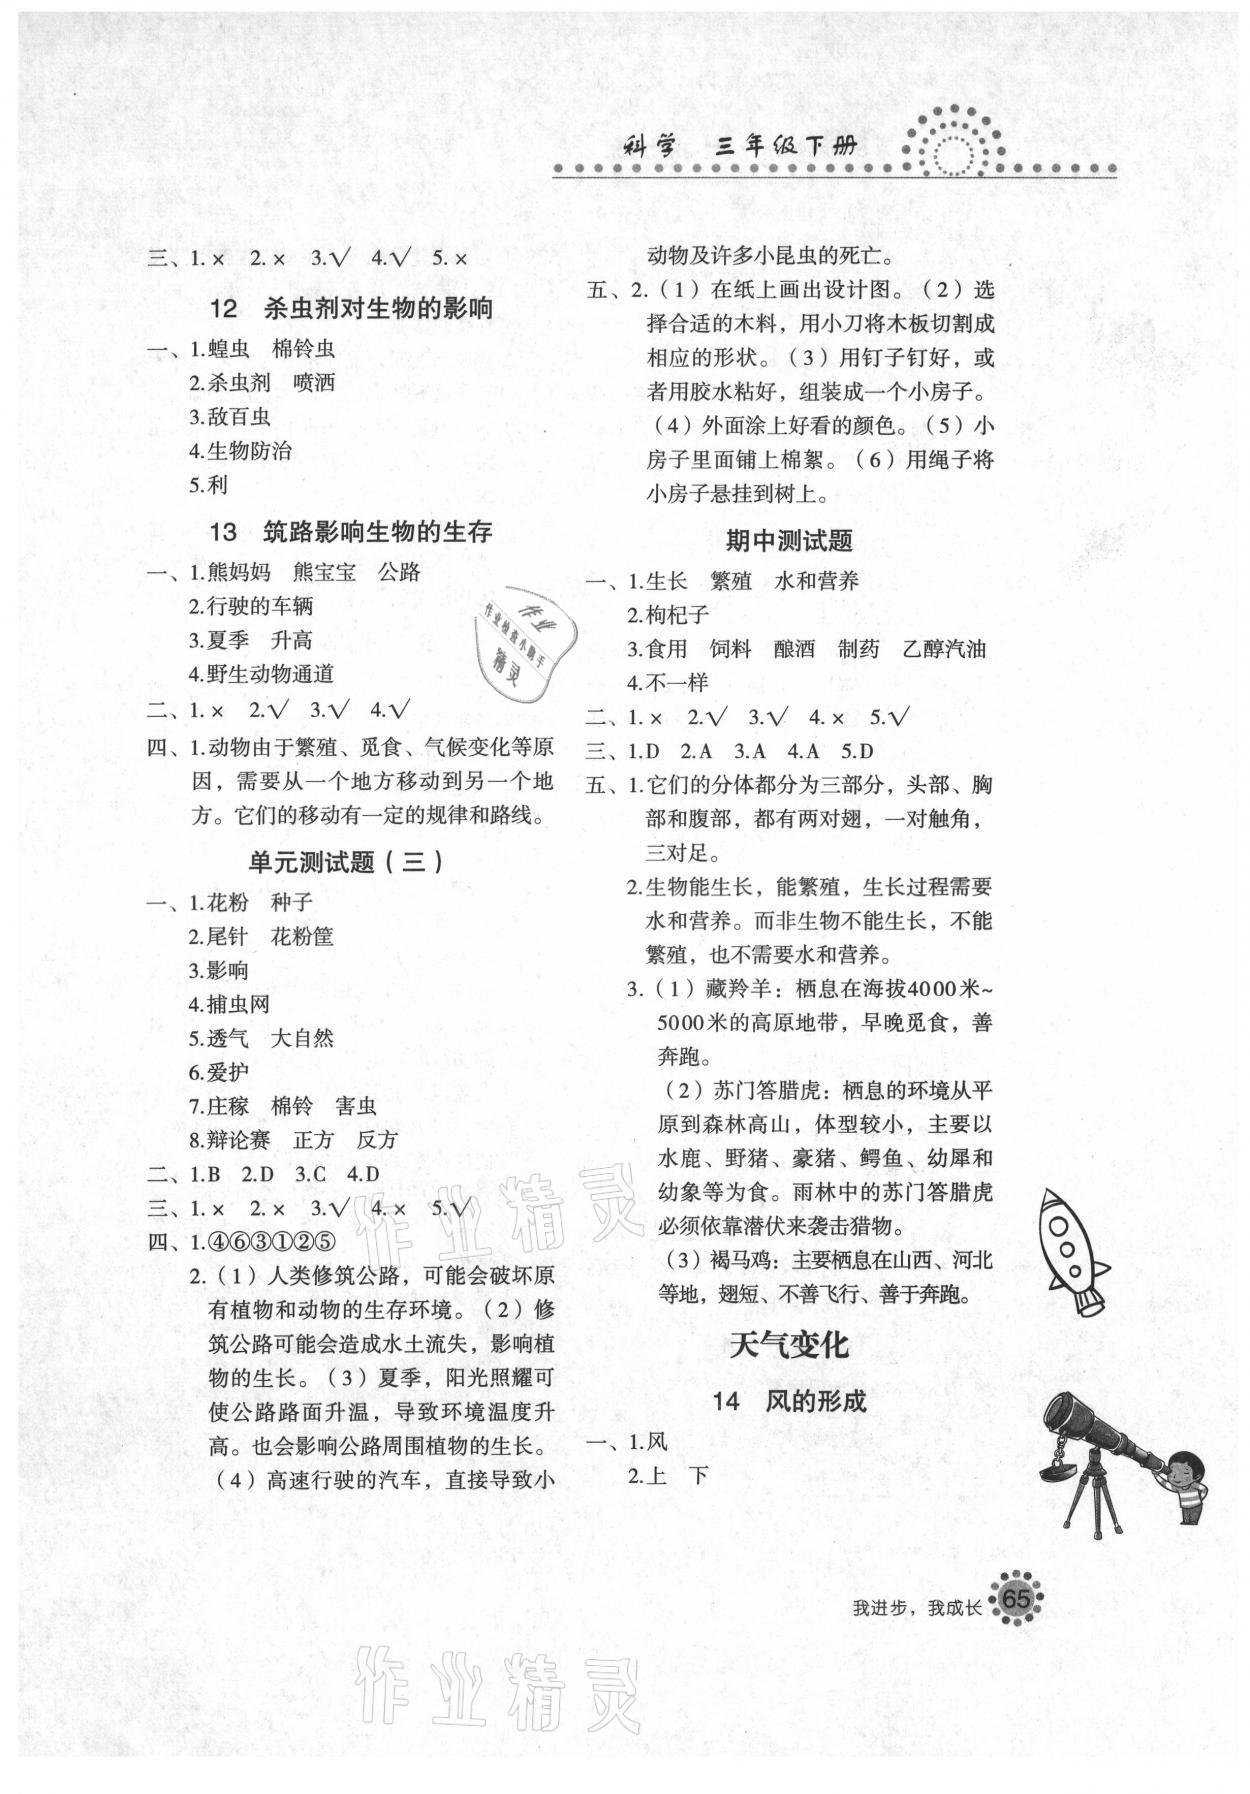 科学 三年级下册
三、1.× 2.× 3.√ 4.√ 5.×
12 杀虫剂对生物的影响
一、1.蝗虫 棉铃虫
2.杀虫剂 喷洒
3.敌百虫
4.生物防治
5.利
13 筑路影响生物的生存
一、1.熊妈妈 熊宝宝 公路
2.行驶的车辆
3.夏季 升高
4.野生动物通道
二、1.× 2.√ 3.√ 4.√
四、1.动物由于繁殖、觅食、气候变化等原
因，需要从一个地方移动到另一个地
方。它们的移动有一定的规律和路线。
单元测试题（三）
一、1.花粉 种子
2.尾针 花粉筐
3.影响
4.捕虫网
5.透气 大自然
6.爱护
7.庄稼 棉铃 害虫
8.辩论赛 正方 反方
二、1.B 2.D 3.C 4.D
三、1.× 2.× 3.√ 4.× 5.√
四、1.④⑥③①②⑤
2.（1）人类修筑公路，可能会破坏原
有植物和动物的生存环境。（2）修
筑公路可能会造成水土流失，影响植
物的生长。（3）夏季，阳光照耀可
使公路路面升温，导致环境温度升
高。也会影响公路周围植物的生长。
（4）高速行驶的汽车，直接导致小
动物及许多小昆虫的死亡。
五、2.（1）在纸上画出设计图。（2）选
择合适的木料，用小刀将木板切割成
相应的形状。（3）用钉子钉好，或
者用胶水粘好，组装成一个小房子。
（4）外面涂上好看的颜色。（5）小
房子里面铺上棉絮。（6）用绳子将
小房子悬挂到树上。
期中测试题
一、1.生长 繁殖 水和营养
2.枸杞子
3.食用 饲料 酿酒 制药 乙醇汽油
4.不一样
二、1.× 2.√ 3.√ 4.× 5.√
三、1.D 2.A 3.A 4.A 5.D
五、1.它们的分体都分为三部分，头部、胸
部和腹部，都有两对翅，一对触角，
三对足。
2.生物能生长，能繁殖，生长过程需要
水和营养。而非生物不能生长，不能
繁殖，也不需要水和营养。
3.（1）藏羚羊：栖息在海拔4000米~
5000米的高原地带，早晚觅食，善
奔跑。
（2）苏门答腊虎：栖息的环境从平
原到森林高山，体型较小，主要以
水鹿、野猪、豪猪、鳄鱼、幼犀和
幼象等为食。雨林中的苏门答腊虎
必须依靠潜伏来袭击猎物。
（3）褐马鸡：主要栖息在山西、河北
等地，翅短、不善飞行、善于奔跑。
天气变化
14 风的形成
一、1.风
2.上 下
我进步，我成长 65
作业
作业检查小助手
精灵
作业精灵
作业精灵